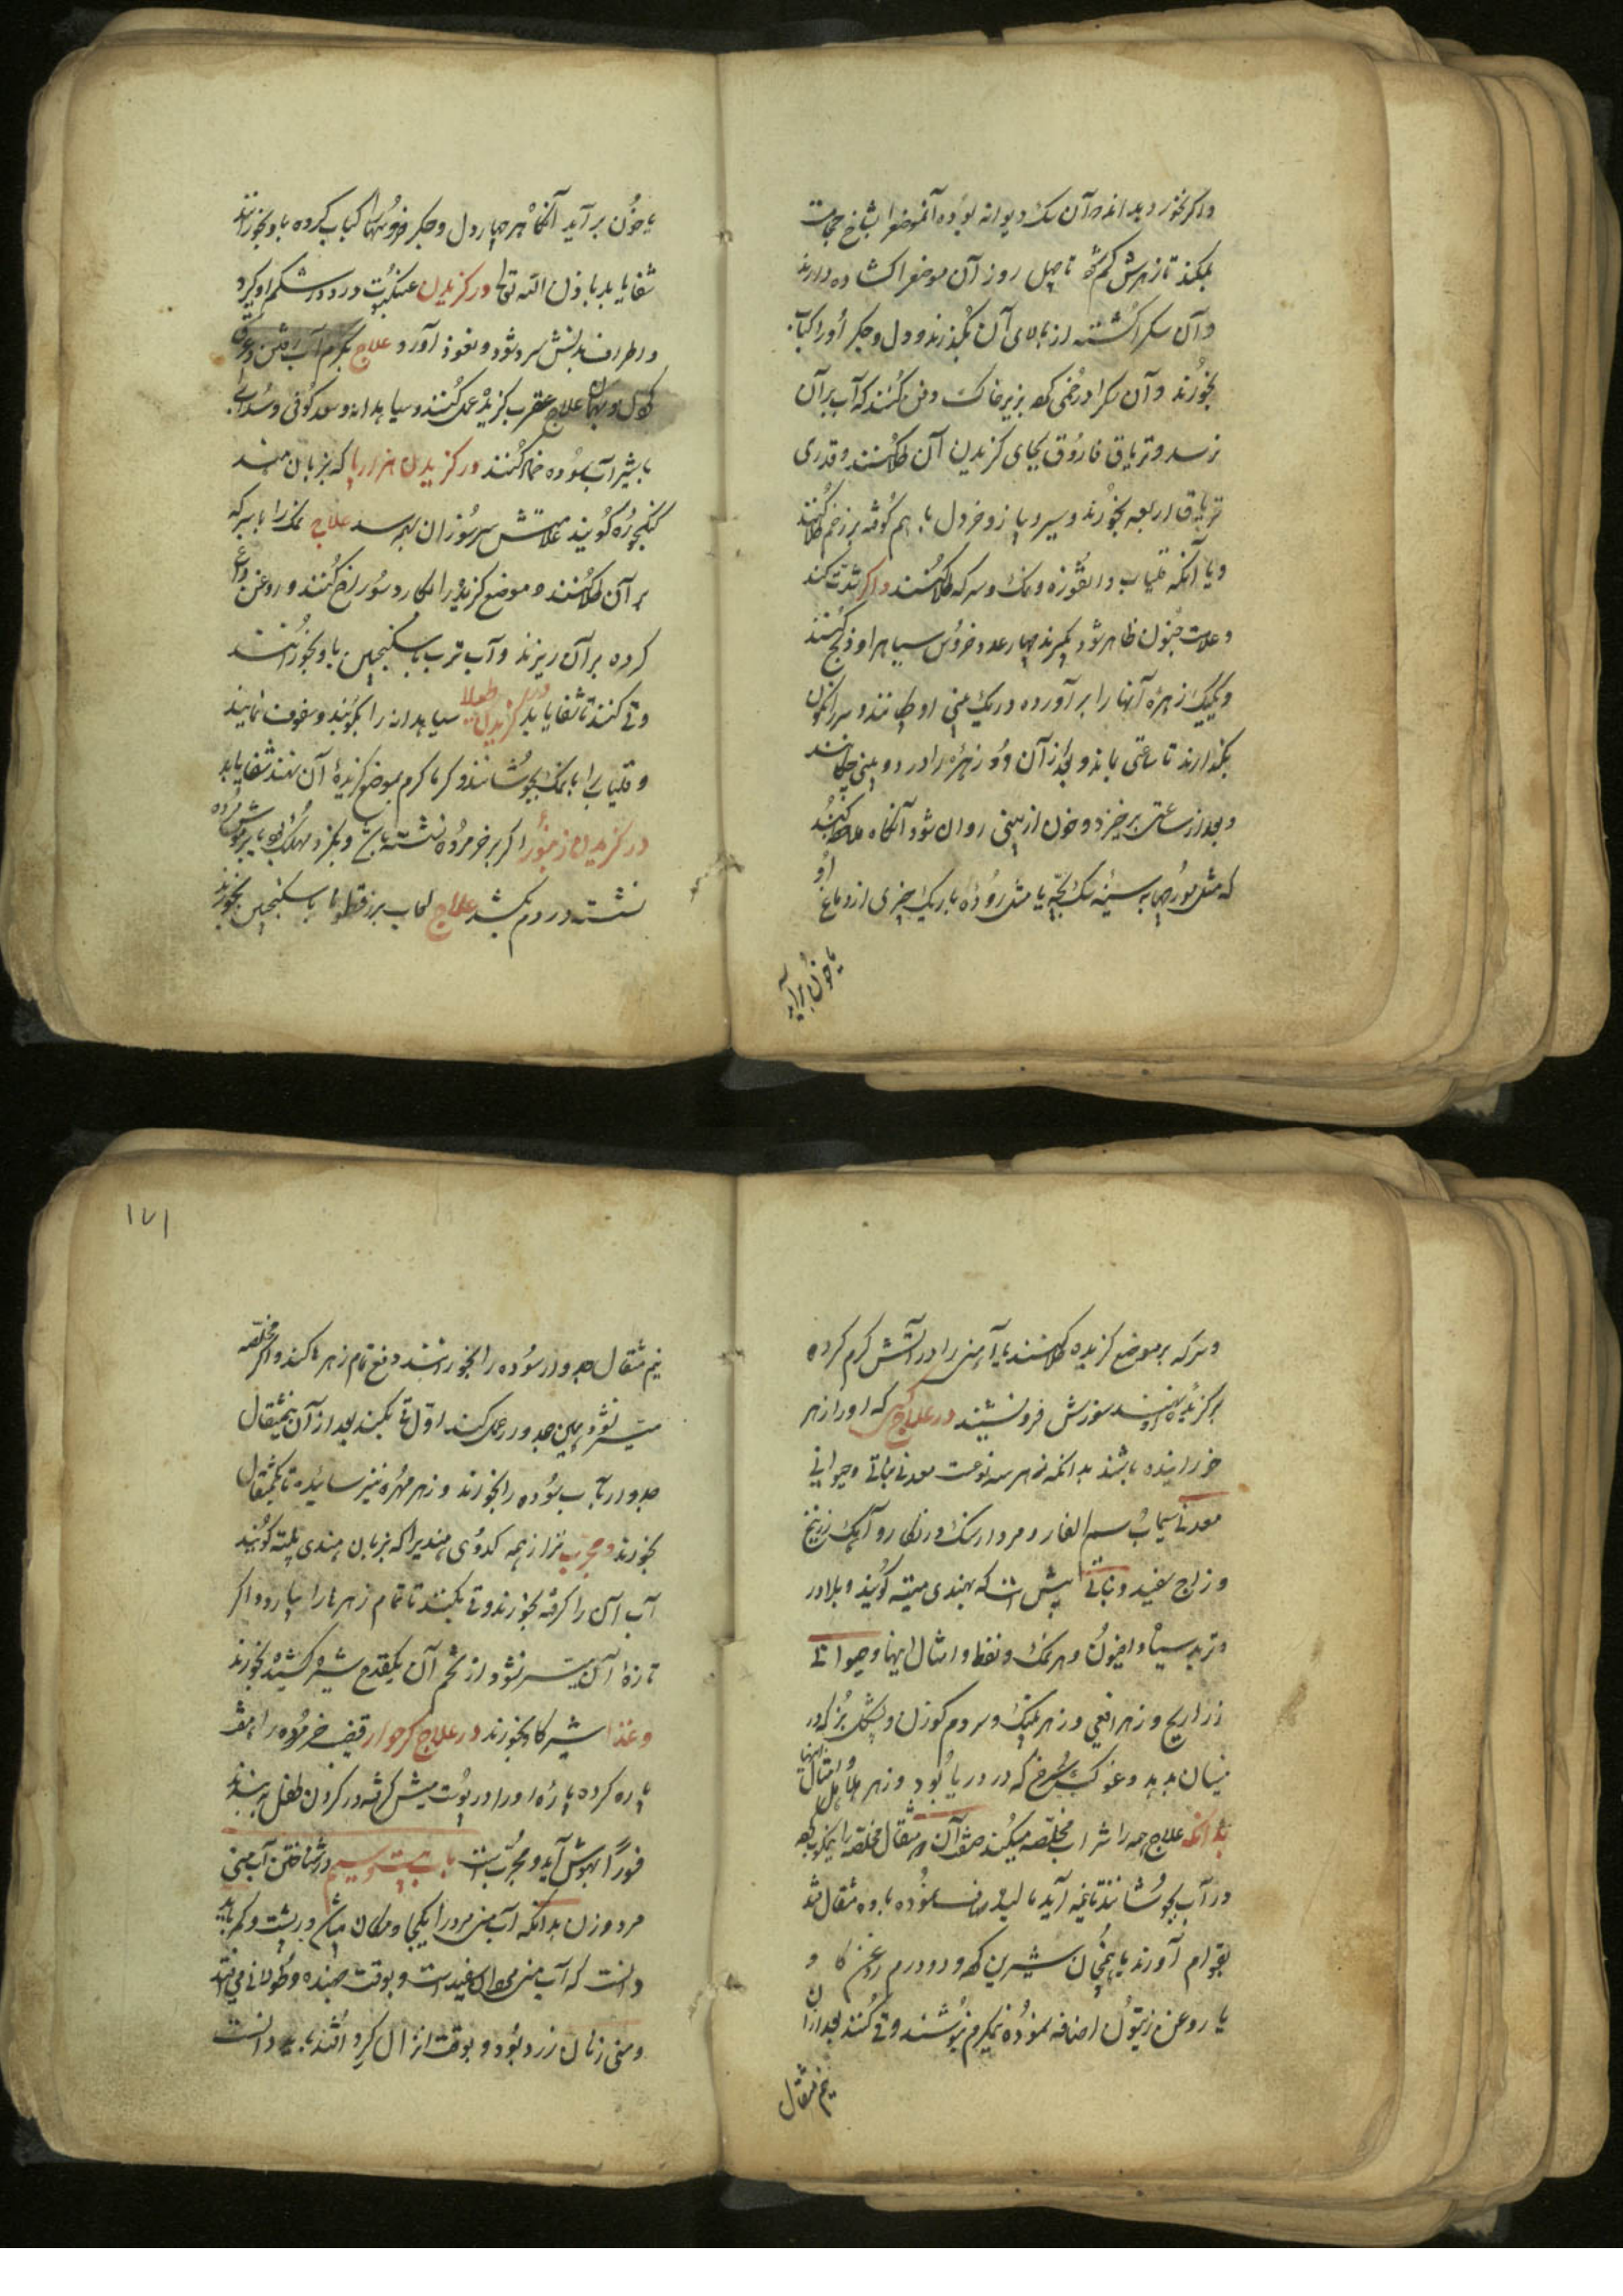 واکر بخورد بداند که آن سک دیوانه بوده آنموضع را بشاخ حجامت
بمکند تا زهرش کم شود تا چهل روز آن موضع را کشاده دارند
وآن سک را کشته از بالای آن بگذرند و دل و جکر او را کباب
بخورند وآن سک را در خمی کرده بزیر خاک دفن کنند که آب بر آن
نرسد و تریاق فاروق بجای کزیدن آن طلا کنند و قدری
تریاق اربعه بخورند و سیر و پیاز و خردل با هم کوفته بر زخم طلا کنند
و یا آنکه قلیاب و انقوزه و نمک و سرکه طلا کنند واکر شدت کند
وعلامت جنون ظاهر شود بکیرند چهار عدد خروس سیاه را و ذبح کنند
ویکیک زهره آنها را برآورده در یک بینی او چکانند و سر را نکون
بکذارند تا ساعتی بماند و بعد از آن دو زهره را در دو بینی چکانند
و بعد از ساعتی برخیزد و خون از بینی روان شود آنکاه ملاحظه کنند
که مثل مورچها به سینه سک بچه یا مثل روده باریک چیزی از دماغ او
یا خون برآید
یا خون برآید آنکاه هر چهار دل و جکر خروسها کباب کرده باو بخورانند
شفا یابد باذن الله تعالی در کزیدن عنکبوت درد در شکم او کیرد
و اطراف بدنش سرد شود و نعوذ آورد علاج بکرم آب رفتن و عرق
علاج عقرب کزیده عمل کنند و سیاهدانه و سعد کوفی و سداب
با شیر آب سوده ضماد کنند در کزیدن هزارپا که بزبان هند
کنکجوره کویند علامتش سر سوزان بهم رسد علاج نمک را با سرکه
بر آن طلا کنند و موضع کزیده را بکارد سوراخ کنند و روغن داغ
کرده بر آن ریزند و آب ترب با سکنجبین باو بخورانند
وقی کنند تا شفا یابد در کزیدن سیاهدانه را بکوبند و سفوف نمایند
و قلیاب را با نمک بجوشانند و کرما کرم بموضع کزیده آن نهند شفا یابد
در کزیدن زنبور اکر بر خر مرده نشسته باشد و بکزد مهلک بود یا بر موش مرده
نشسته در دم بکشد علاج لعاب بزرقطونا با سکنجبین بخورند
وسرکه بر موضع کزیده طلا کنند یا آهن را در آتش کرم کرده
بر کزیده نهند سوزش فرو نشیند در علاج کسی که او را زهر
خورانیده باشند بدانکه زهر سه نوعست معدنی نباتی و حیوانی
معدنی سیماب سم الفار و مردارسنک و زنکار و آهک زرنیخ
و زاج سفید و نباتی بیش است که بهندی میته کویند و بلادر
و تربد سیاه و افیون و هر نمک و نفط و امثال اینها و حیوانی
ذراریح و زهر افعی و زهر پلنک و سر دم کوزن و پشکل بز که در
نیسان بدهد و غوک سرخ که در دریا بود و زهر هلاهل و امثال اینها
بدانکه علاج همه را شراب مخلصه میکنند صفت آن ده مثقال مخلصه را نیمکوب کرده
در آب بجوشانند تا نیمه آید پالیده صاف نموده با ده مثقال قند
بقوام آورند یا همچنان شیرین کرده و دو درم روغن کاو
یا روغن زیتون اضافه نموده نیمکرم بنوشند وقی کنند بعد از آن
نیم مثقال
۱۷۱
نیم مثقال جدوار سوده را بخورانند دفع تمام زهرها کند واکر مخلصه
میسر نشود همین جدوار عمل کند اول قی بکنند بعد از آن نیممثقال
جدوار بآب سوده را بخورند و زهر مهره نیز سائیده تا یکمثقال
بخورند و مجرب تر از همه کدوی هندی را که بزبان هندی پلته کویند
آب آن را کرفته بخورند و قی بکنند تا تمام زهرها را بیارد و اکر
تازه آن میسر نشود از تخم آن یکقدح شیره کشیده بخورند
وغذا شیر کاو بخورند در علاج قضیب خر مرده را
پاره کرده پاره او را در پوست میش کرفته در کردن طفل به بندند
فورا بهوش آید و مجرب است باب بیست و سیم در شناختن آب منی
مرد و زن بدانکه آب منی مرد را یکجا و مکان میباشد در پشت و کمر باید
دانست که آب منی مردان سفید است و بوقت جهنده و طولانی می افتد
ومنی زنان زرد بود و بوقت انزال کرد افتد باید دانست